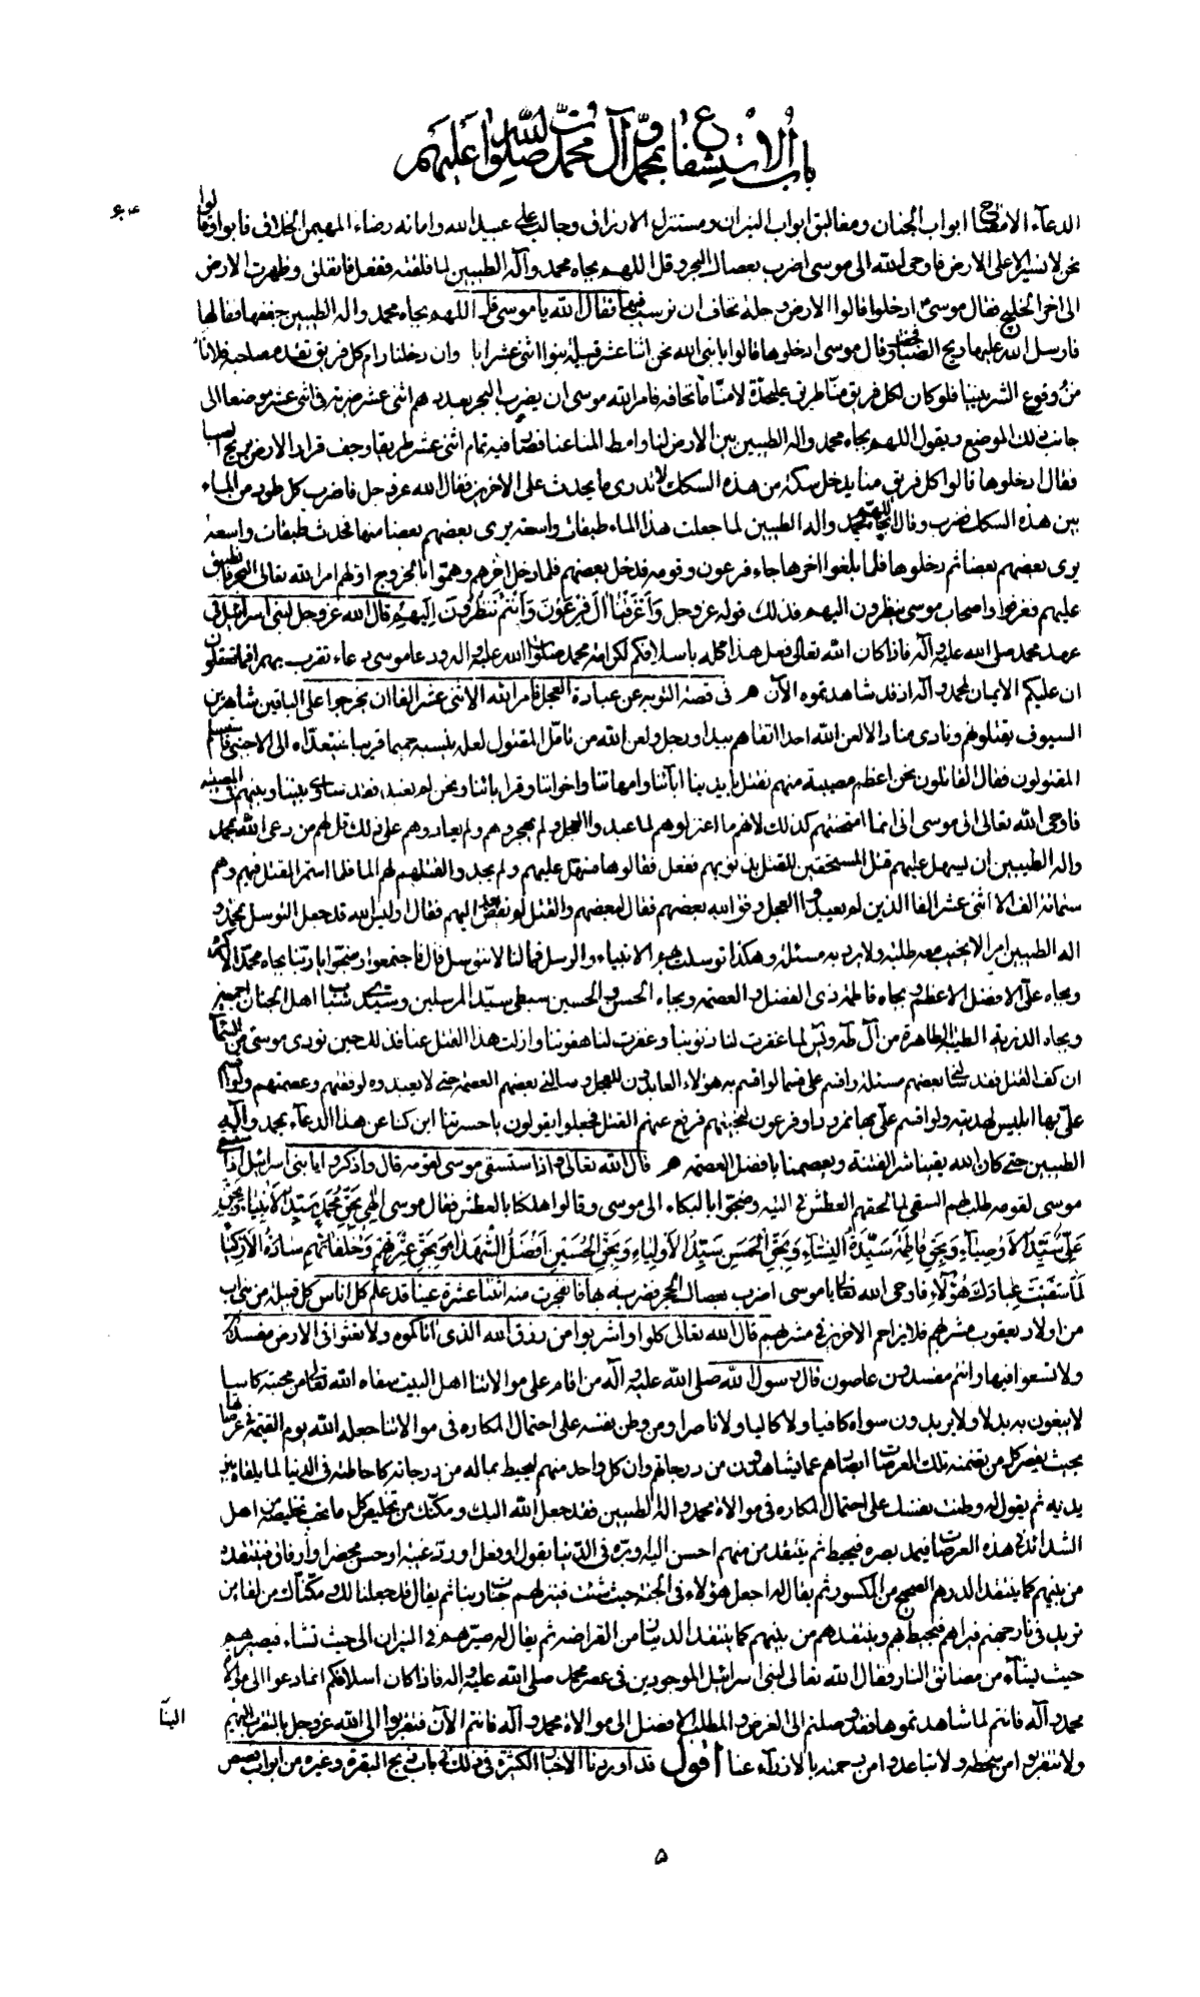 باب الاستشفاع بمحمد وآل محمد صلوات الله عليهم
۶۰۴
الدعاء الا مفتاحا ابواب الجنان ومغاليق ابواب النيران ومستنزل الارزاق وجالب على عبيد الله وامائه رضاء المهيمن الخلاق فابوا وقالوا
نحن لا نسير الا على الارض فاوحى الله الى موسى اضرب بعصاك البحر وقل اللهم بجاه محمد وآله الطيبين لما فلقته ففعل فانفلق وظهرت الارض
الى اخر الخليج فقال موسى ادخلوا قالوا الارض وحلة نخاف ان نرسب فيها فقال الله يا موسى قل اللهم بجاه محمد واله الطيبين جففها فقالها
فارسل الله عليها ريح الصبا فجفت وقال موسى ادخلوها قالوا يا نبى الله نحن اثنا عشر قبيلة بنوا اثنى عشر ابا وان دخلنا رام كل فريق تقدم صاحبه فلا نأ
من وقوع الشر بيننا فلو كان لكل فريق منا طريق عليحدة لامنا ما نخافه فامر الله موسى ان يضرب البحر بعددهم اثنى عشر ضربة فى اثنى عشر موضعا الى
جانب ذلك الموضع ويقول اللهم بجاه محمد واله الطيبين بين الارض لنا وامط الماء عنا فصار فيه تمام اثنى عشر طريقا وجف قرار الارض بريح الصبا
فقال ادخلوها قالوا كل فريق منا يدخل سكة من هذه السكك لا ندرى ما يحدث على الاخرين فقال الله عز وجل فاضرب كل طود من الماء
بين هذه السكك فضرب وقال اللهم بجاه محمد واله الطيبين لما جعلت هذا الماء طبقات واسعة يرى بعضهم بعضا منها فحدث طبقات واسعة
يرى بعضهم بعضا ثم دخلوها فلما بلغوا اخرها جاء فرعون وقومه فدخل بعضهم فلما دخل اخرهم وهموا بالخروج اولهم امر الله تعالى البحر فانطبق
عليهم فغرقوا واصحاب موسى ينظرون اليهم فذلك قوله عز وجل وَاَغْرَقْنَا آلَ فِرْعَوْنَ وَاَنْتُمْ تَنْظُرُونَ اليهم قال الله عز وجل لبنى اسرائيل فى
عهد محمد صلى الله عليه وآله فاذا كان الله تعالى فعل هذا كله باسلافكم لكرامة محمد صلوات الله عليه وآله ودعا موسى دعاء تقرب بهم افما تعقلون
ان عليكم الايمان لمحمد وآله اذ قد شاهدتموه الآن هر فى قصة التوبة عن عبادة العجل فامر الله الاثنى عشر الفا ان يخرجوا على الباقين شاهرين
السيوف يقتلونهم ونادى مناد الا لعن الله احدا اتقاهم بيد او رجل ولعن الله من تأمل المقتول لعله ينسبه حميما قريبا فيتعداه الى الاجنبى فاستسلم
المقتولون فقال القاتلون نحن اعظم مصيبة منهم نقتل بايدينا ابآئنا وامهاتنا واخواننا وقراباتنا ونحن لم نعبد، فقد ساوى بيننا وبينهم فى المصيبة
فاوحى الله تعالى الى موسى انى انما امتحنتهم كذلك لانهم ما اعتزلوهم لما عبدوا العجل ولم يهجروهم ولم يعادوهم على ذلك قل لهم من دعى الله بمحمد
واله الطيبين ان يسهل عليهم قتل المستحقين للقتل بذنوبهم ففعل فقالوها فسهل عليهم ولم يجدوا لقتلهم لهم الما فلما استمر القتل فيهم وهم
ستمائة الف الا اثنى عشر الفا الذين لم يعبدوا العجل وفق الله بعضهم فقال لبعضهم والقتل لم يفض بعد اليهم فقال اوليس الله قد جعل التوسل بمحمد و
اله الطيبين امرا لا يخيب معه طلبة ولا يرد به مسئلة وهكذا توسلت بهم الانبياء والرسل فما لنا لا نتوسل قال فاجتمعوا وضجوا يا ربنا بجاه محمد الاكرم
وبجاه على الافضل الاعظم وبجاه فاطمة ذى الفضل والعصمة وبجاه الحسن والحسين سبطى سيد المرسلين وسيدى شباب اهل الجنان اجمعين
وبجاه الذرية الطيبة الطاهرة من آل طه ويس لما غفرت لنا ذنوبنا وغفرت لنا هفوتنا وازلت هذا القتل عنا فذلك حين نودى موسى من السماء
ان كف القتل فقد سألنى بعضهم مسئلة واقسم على قسما لو اقسم به هؤلاء العابدون للعجل وسالنى بعضهم العصمة حتى لا يعبدوه لوفقتهم وعصمتهم ولو اقسم
على بها ابليس لهديته ولو اقسم على بها نمرود او فرعون لنجيتهم فرفع عنهم القتل فجعلوا يقولون يا حسرتنا اين كنا عن هذا الدعاء بمحمد وآله
الطيبين حتى كان الله يقينا شر الفتنة ويعصمنا بافضل العصمة هر قال الله تعالى واذ استسقى موسى لقومه قال واذكروا يا بنى اسرائيل اذ استسقى
موسى لقومه طلب لهم السقى لما لحقهم العطش فى التيه وضجوا بالبكاء الى موسى وقالوا هلكنا بالعطش فقال موسى اِلٰهِى بِحَقِّ مُحَمَّدٍ سَيِّدِ الْاَنْبِيَاءِ وَبِحَقِّ
عَلِىٍّ سَيِّدِ الْاَوْصِيَآءِ وَبِحَقِّ فَاطِمَةَ سَيِّدَةِ النِّسَآءِ وَبِحَقِّ الْحَسَنِ سَيِّدِ الْاَوْلِيَاءِ وَبِحَقِّ الْحُسَيْنِ اَفْضَلِ الشُّهَدَاءِ وَبِحَقِّ عِتْرَتِهِمْ وَخُلَفَائِهِمْ سَادَةِ الْاَزْكِيَاءِ
لَمَّا سَقَيْتَ عِبَادَكَ هٰؤُلَآءِ فاوحى الله تعالى يا موسى اضرب بعصاك الحجر فضربه بها فانفجرت منه اثنتا عشرة عينا قد علم كل اناس كل قبيلة من بنى اب
من اولاد يعقوب مشربهم فلا يزاحم الاخرين فى مشربهم قال الله تعالى كلوا واشربوا من رزق الله الذى اتاكموه ولا تعثوا فى الارض مفسدين
ولا تسعوا فيها وانتم مفسدون عاصون قال رسول الله صلى الله عليه وآله من اقام على موالاتنا اهل البيت سقاه الله تعالى من محبته كاسا
لا يبغون به بدلا ولا يريدون سواه كافيا ولا كاليا ولا ناصرا ومن وطن نفسه على احتمال المكاره فى موالاتنا جعله الله يوم القيمة فى عرصاتها
بحيث يقصر كل من تضمنته تلك العرصات ابصارهم عما يشاهدون من درجاتهم وان كل واحد منهم ليحيط بماله من درجاته كاحاطته فى الدنيا لما يلقاه بين
يديه ثم يقول له وطنت نفسك على احتمال المكاره فى موالاة محمد واله الطيبين فقد جعل الله اليك ومكنك من تخليص كل ما تحب تخليصه من اهل
الشدائد فى هذه العرصات فيمد بصره فيحيط ثم ينتقد من منهم احسن اليه او بره فى الدنيا بقول او فعل او رد غيبة او حسن محضر او ارفاق فينتقده
من بينهم كما ينتقد الدرهم الصحيح من المكسور ثم يقال له اجعل هؤلاء فى الجنة حيث شئت فينزلهم جنات ربنا ثم يقال له قد جعلنا لك ومكناك من لقاء من
تريد فى نار جهنم فيراهم فيحيط بهم وينتقدهم من بينهم كما ينتقد الدينار من القراضة ثم يقال له صيرهم فى النيران الى حيث تشاء فيصيرهم
حيث يشآء من مضائق النار فقال الله تعالى لبنى اسرائيل الموجودين فى عصر محمد صلى الله عليه واله فاذا كان اسلافكم انما دعوا الى موالاة
محمد وآله فانتم لما شاهدتموهم فقد وصلتم الى الغرض والمطلب الافضل الى موالاة محمد وآله فانتم الآن فتقربوا الى الله عز وجل بالتقرب اليهم
ولا تتقربوا من سخطه ولا تباعدوا من رحمته بالازدراء عنا اقول قد اوردنا الاخبار الكثيرة فى ذلك فى باب ذبح البقرة وغيره من ابواب قصص
البنا
۵